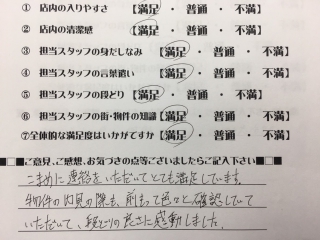 ① 店内の入りやすさ 【満足 ・ 普通 ・ 不満】
② 店内の清潔感 【満足 ・ 普通 ・ 不満】
③ 担当スタッフの身だしなみ 【満足 ・ 普通 ・ 不満】
④ 担当スタッフの言葉遣い 【満足 ・ 普通 ・ 不満】
⑤ 担当スタッフの段どり 【満足 ・ 普通 ・ 不満】
⑥ 担当スタッフの街・物件の知識 【満足 ・ 普通 ・ 不満】
⑦全体的な満足度はいかがですか 【満足 ・ 普通 ・ 不満】
■□■ご意見、ご感想、お気づきの点等ございましたらご記入下さい■□■
こまめに連絡をいただいてとても満足しています。
物件の内見の際も、前もって色々と確認していて
いただいて、段どりの良さに感動しました。